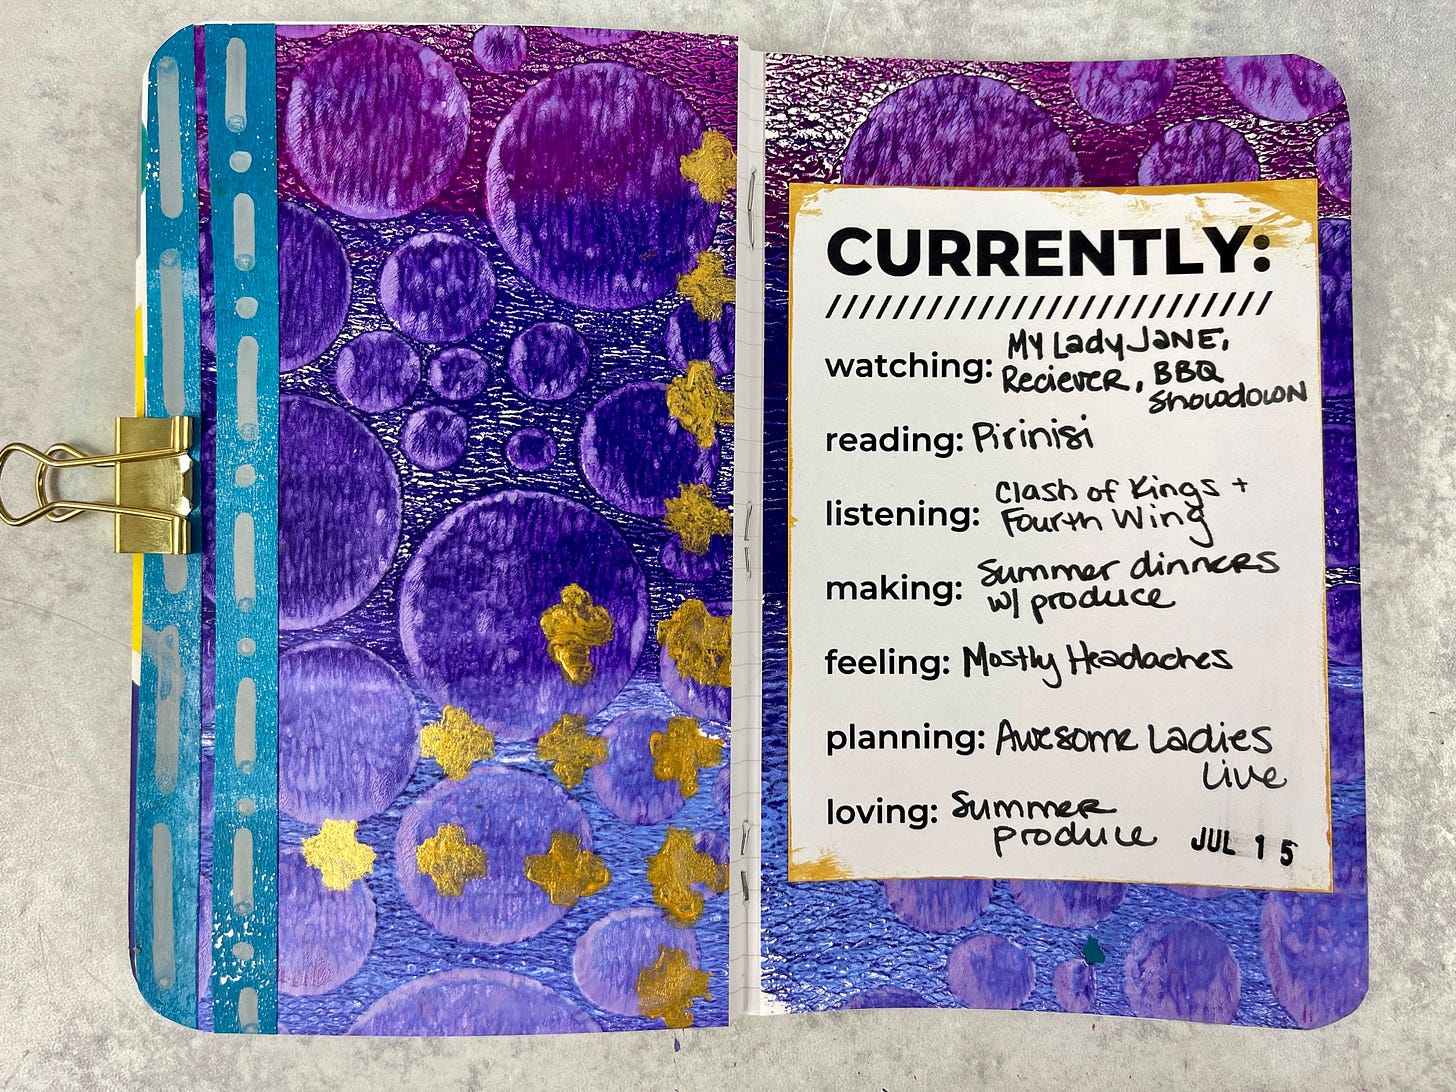 CURRENTLY:
watching: My Lady Jane,
Reciever, BBQ
Showdown
reading: Pirinisi
listening: Clash of Kings +
Fourth Wing
making: Summer dinners
w/ produce
feeling: Mostly Headaches
planning: Awesome Ladies
Live
loving: Summer
produce
JUL 15